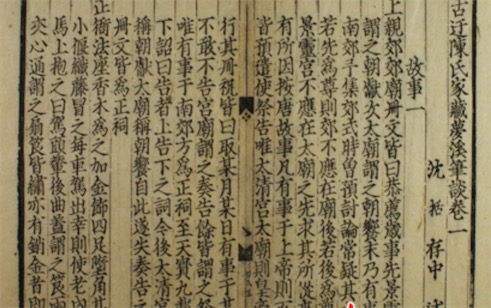 古迂陳氏家藏夢溪筆談卷一
沈括存中
故事一
上親郊郊廟冊文皆曰恭薦歲事先景
謂之朝獻次太廟謂之朝饗末乃有
南郊予集郊式時曾預討論常疑其
若先為尊則郊不應在廟後若後為
景靈宮不應在太廟之先求其所從
有所因按唐故事凡有事于上帝則
皆預遣使祭告唯太清宮太廟則皇
行其冊祝皆曰取某月某日有事于
不敢不告宮廟謂之奏告餘皆謂之祭
唯有事于南郊方為正祠至天寶九載
下詔曰告者上告下之詞今後太清
稱朝獻太廟稱朝饗自此遂失奏告之
冊文皆為正祠
正衙法座香木為之加金飾四足墮角其
小偃織藤冒之每車駕出幸則使老內
馬上抱之曰駕頭輦後曲蓋謂之筤兩
夾心通謂之扇筤皆繡亦有銷金者即